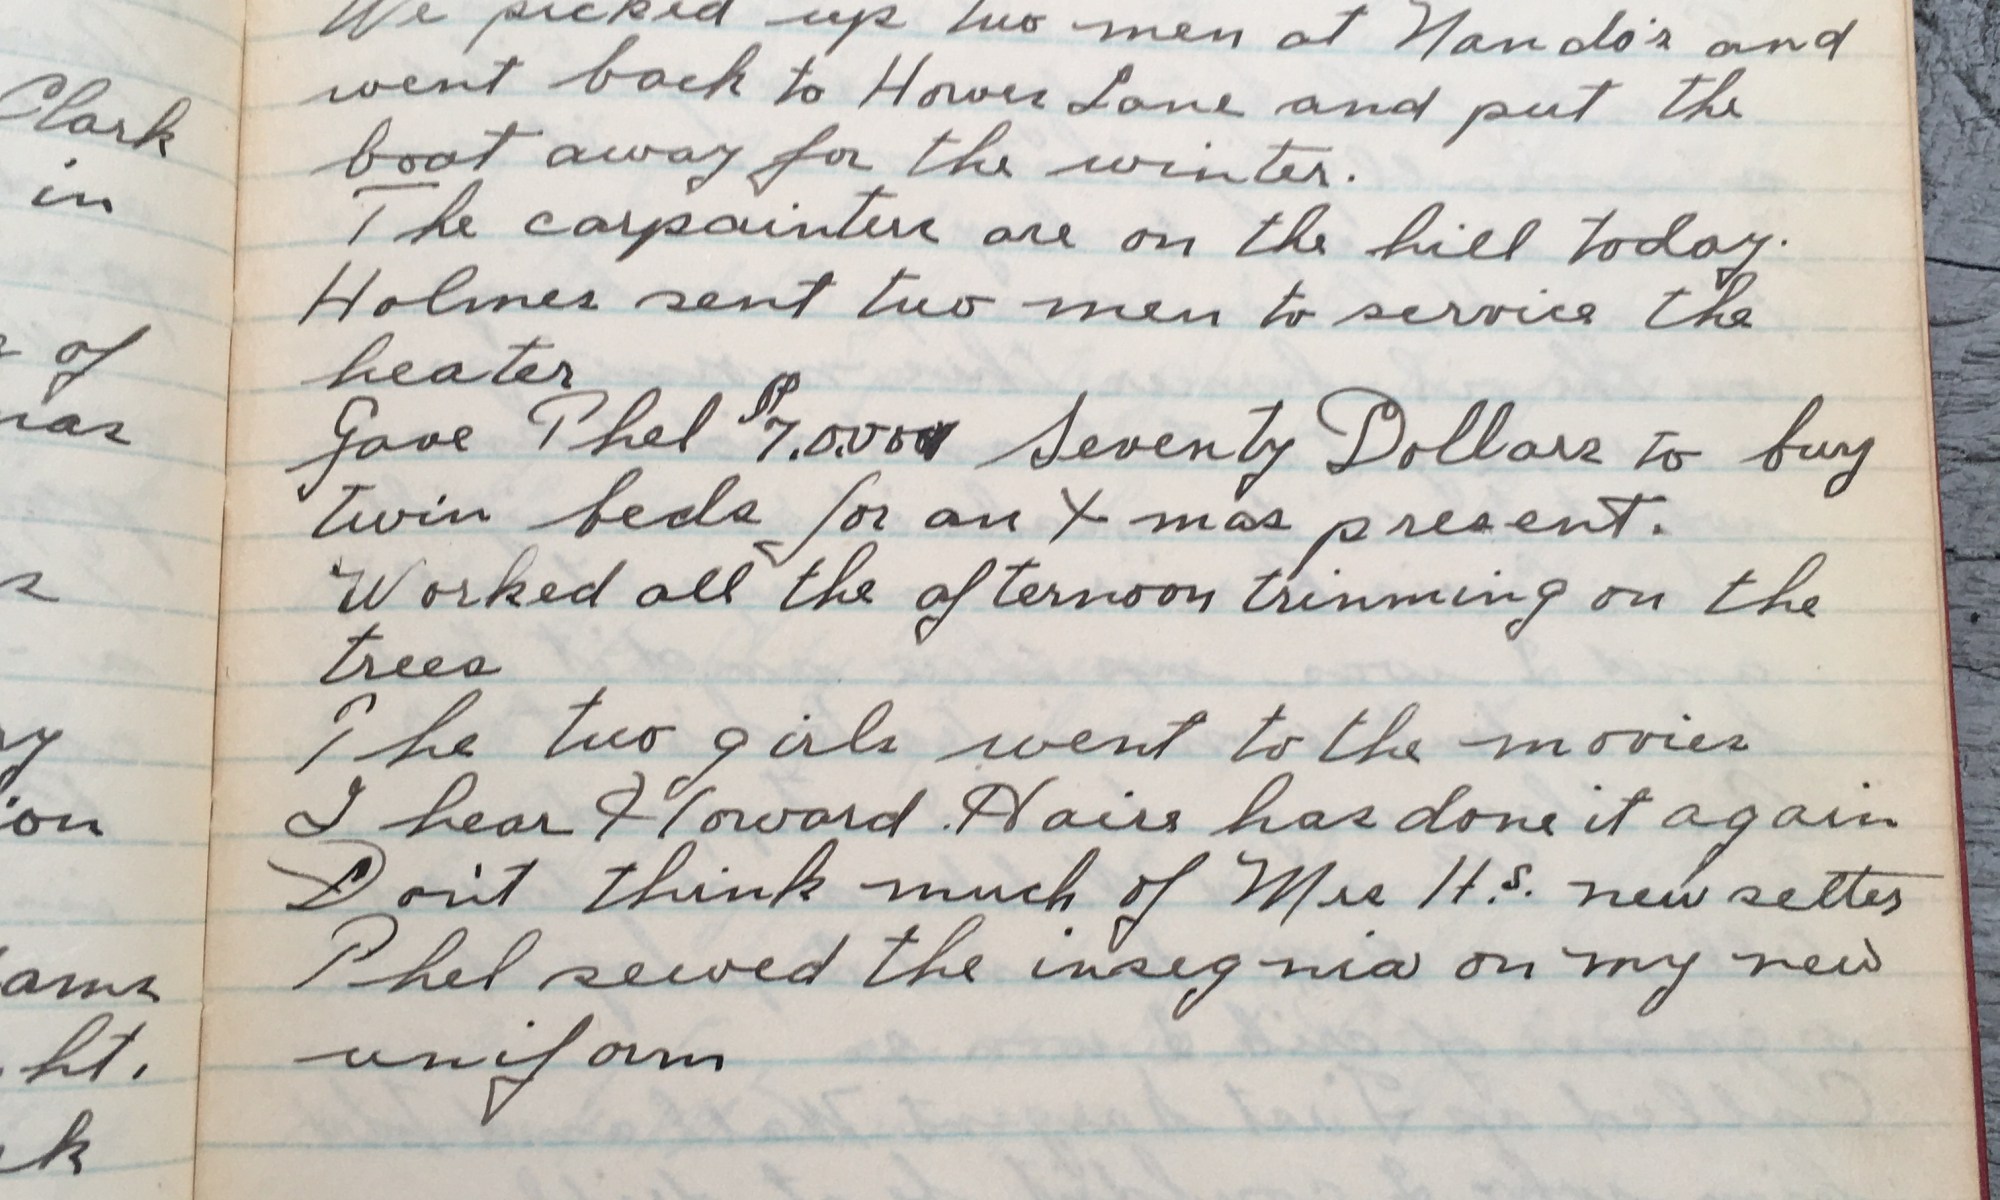 Clark
in
of
We picked up two men at Nando's and
went back to Howes Lane and put the
boat away for the winter.
The carpainters are on the hill today.
Holmes sent two men to service the
heater
Gave Phel $7.0.00 Seventy Dollars to buy
twin beds for an Xmas present.
Worked all the afternoon trimming on the
trees
The two girls went to the movies
I hear Howard Haire has done it again
Don't think much of Mrs H.s. new setter
Phel sewed the insegnia on my new
uniform